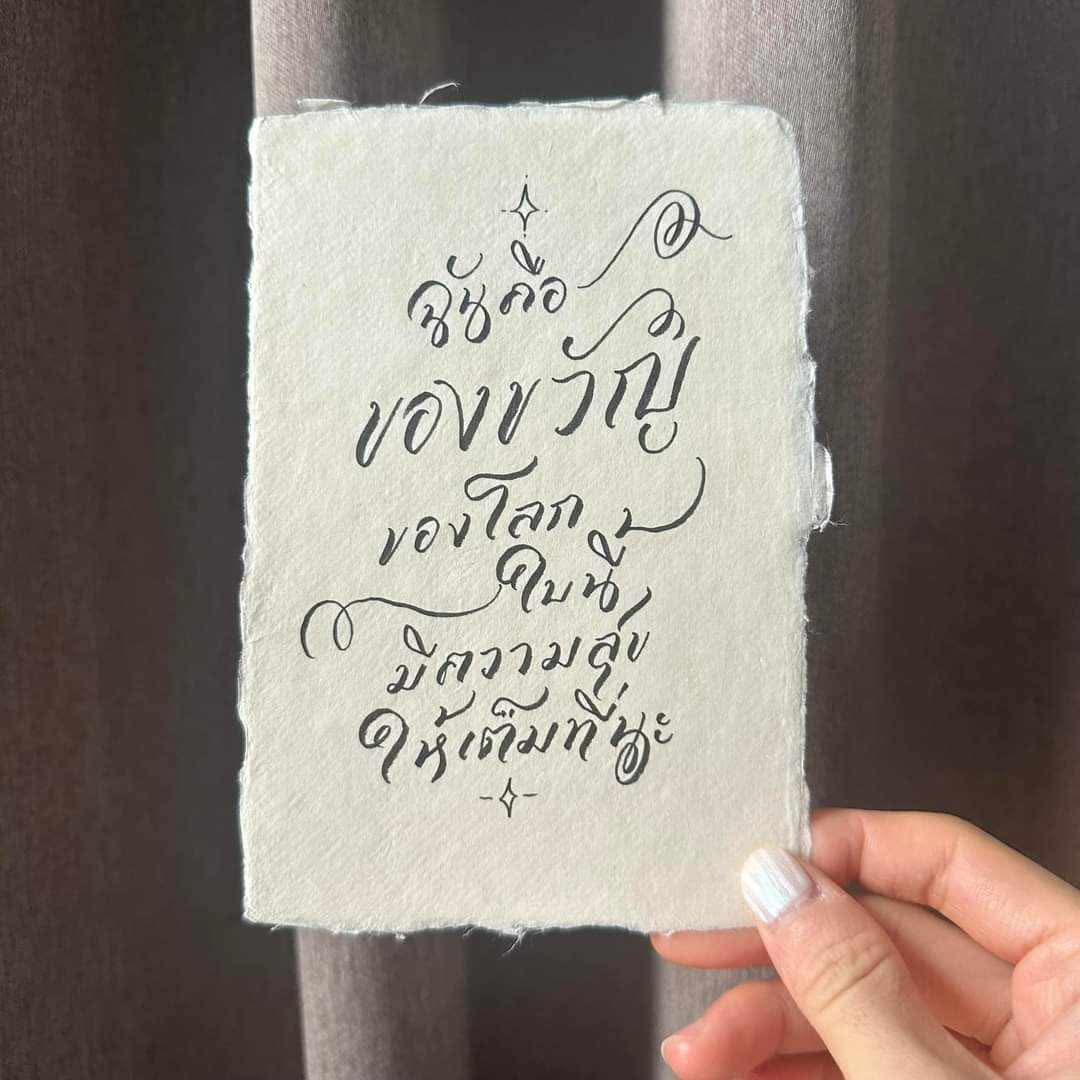 ฉันคือ
ของขวัญ
ของโลก
ใบนี้
มีความสุข
ให้เต็มที่นะ